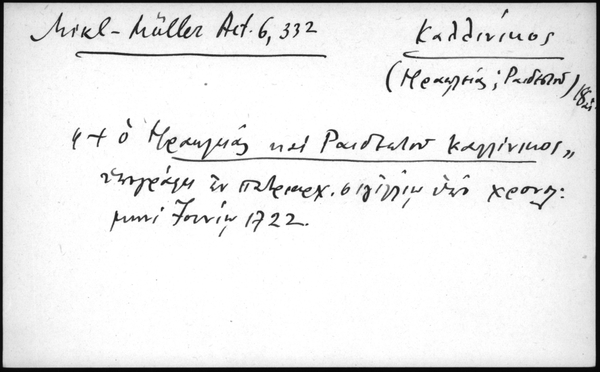 Mikl-Müller Act. 6, 332
Καλλίνικος
(Ηρακλείας; Ραιδεστού) 18 αι.
"+ ὁ Ἡρακλείας καὶ Ραιδεστοῦ Καλλίνικος"
ὑπογράφει ἐν πατριαρχ. σιγιλλίῳ ὑπὸ χρονολ:
μηνὶ Ἰουνίῳ 1722.